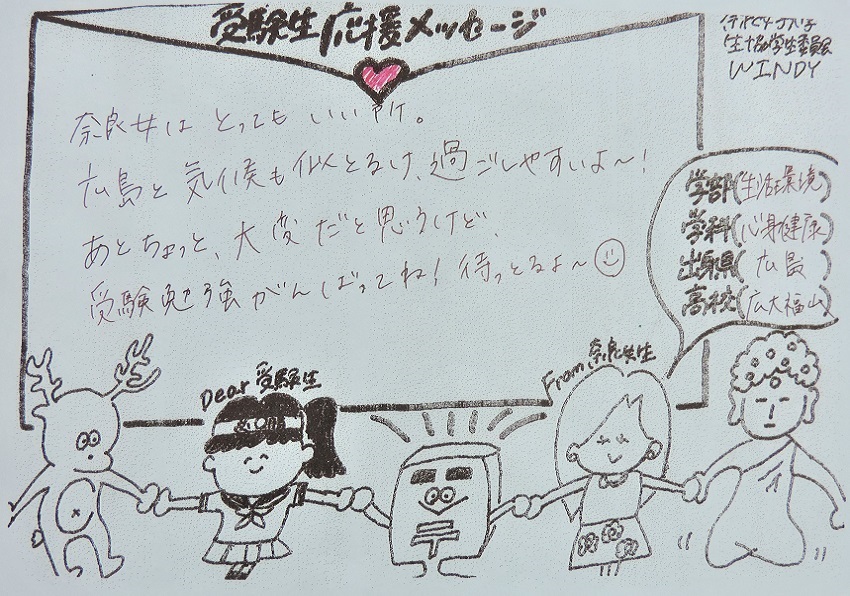 受験生応援メッセージ
奈良女子大学
生協学生委員会
WINDY
奈良女は とっても いい所。
広島と 気候も 似とるけ、過ごしやすいよ～!
あとちょっと、大変だと思うけど、
受験勉強がんばってね! 待っとるよ～
学部(生活環境)
学科(心身健康)
出身県(広島)
高校(広大福山)
Dear 受験生
From 奈良女生
〒